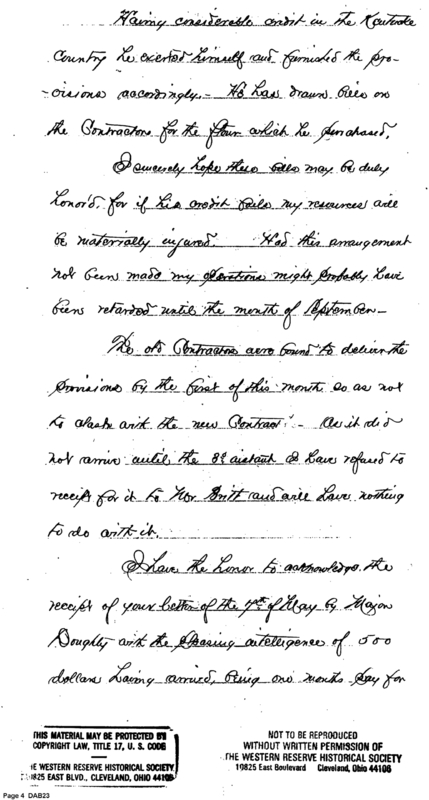 Having considerable credit in the Kentucke
Country he exerted himself and furnished the pro-
-visions accordingly.- He has drawn bills on
the Contractors for the flour which he purchased.
I sincerely hope these bills may be duly
honor'd, for if his credit fails my resources will
be materially injured. Had this arrangement
not been made my operations might probably have
been retarded until the month of September-
The old Contractors were bound to deliver the
provisions by the first of this month so as not
to clash with the new Contract.- As it did
not arrive until the 8th instant I have refused to
receipt for it to Mr Britt and will have nothing
to do with it.
I have the honor to acknowledge the
receipt of your letter of the 7th of May by Major
Doughty with the pleasing intelligence of 500
dollars having arrived, being one months pay for
THIS MATERIAL MAY BE PROTECTED BY
COPYRIGHT LAW, TITLE 17, U. S. CODE
THE WESTERN RESERVE HISTORICAL SOCIETY
10825 EAST BLVD., CLEVELAND, OHIO 44106
NOT TO BE REPRODUCED
WITHOUT WRITTEN PERMISSION OF
THE WESTERN RESERVE HISTORICAL SOCIETY
10825 East Boulevard Cleveland, Ohio 44106
Page 4 DAB23